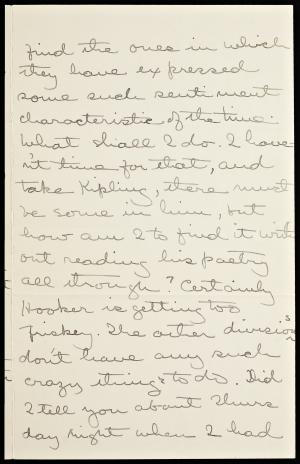 find the ones in which
they have expressed
some such sentiment
characteristic of the time.
What shall I do. I have
n't time for that, and
take Kipling, there must
be some in him, but
how am I to find it with
out reading his poetry
all through? Certainly
Hooker is getting too
frisky. The other divisions
don't have any such
crazy things to do. Did
I tell you about Thurs
day night when I had